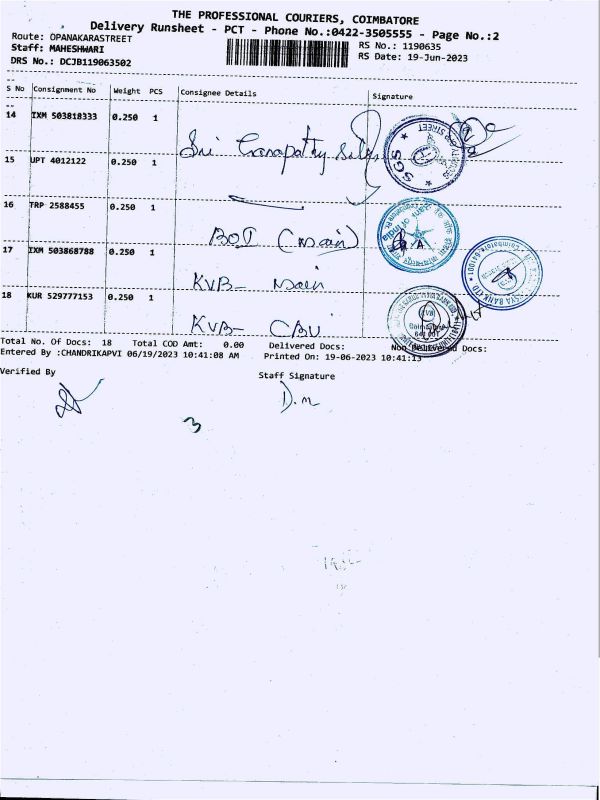 THE PROFESSIONAL COURIERS, COIMBATORE
Delivery Runsheet - PCT - Phone No.:0422-3505555 - Page No.:2
Route: OPANAKARASTREET
RS No.: 1190635
Staff: MAHESHWARI
RS Date: 19-Jun-2023
DRS No.: DCJB119063502
S No Consignment No Weight PCS Consignee Details Signature
14 IXM 503818333 0.250 1
Sri Ganapathy
SGS
15 UPT 4012122 0.250 1
16 TRP 2588455 0.250 1
BOI (Main)
17 IXM 503868788 0.250 1
KVB- Main
18 KUR 529777153 0.250 1
KVB- CBU
Total No. Of Docs: 18 Total COD Amt: 0.00 Delivered Docs: Non Delivered Docs:
Entered By :CHANDRIKAPVI 06/19/2023 10:41:08 AM Printed On: 19-06-2023 10:41:13
Verified By
Staff Signature
D.M
3